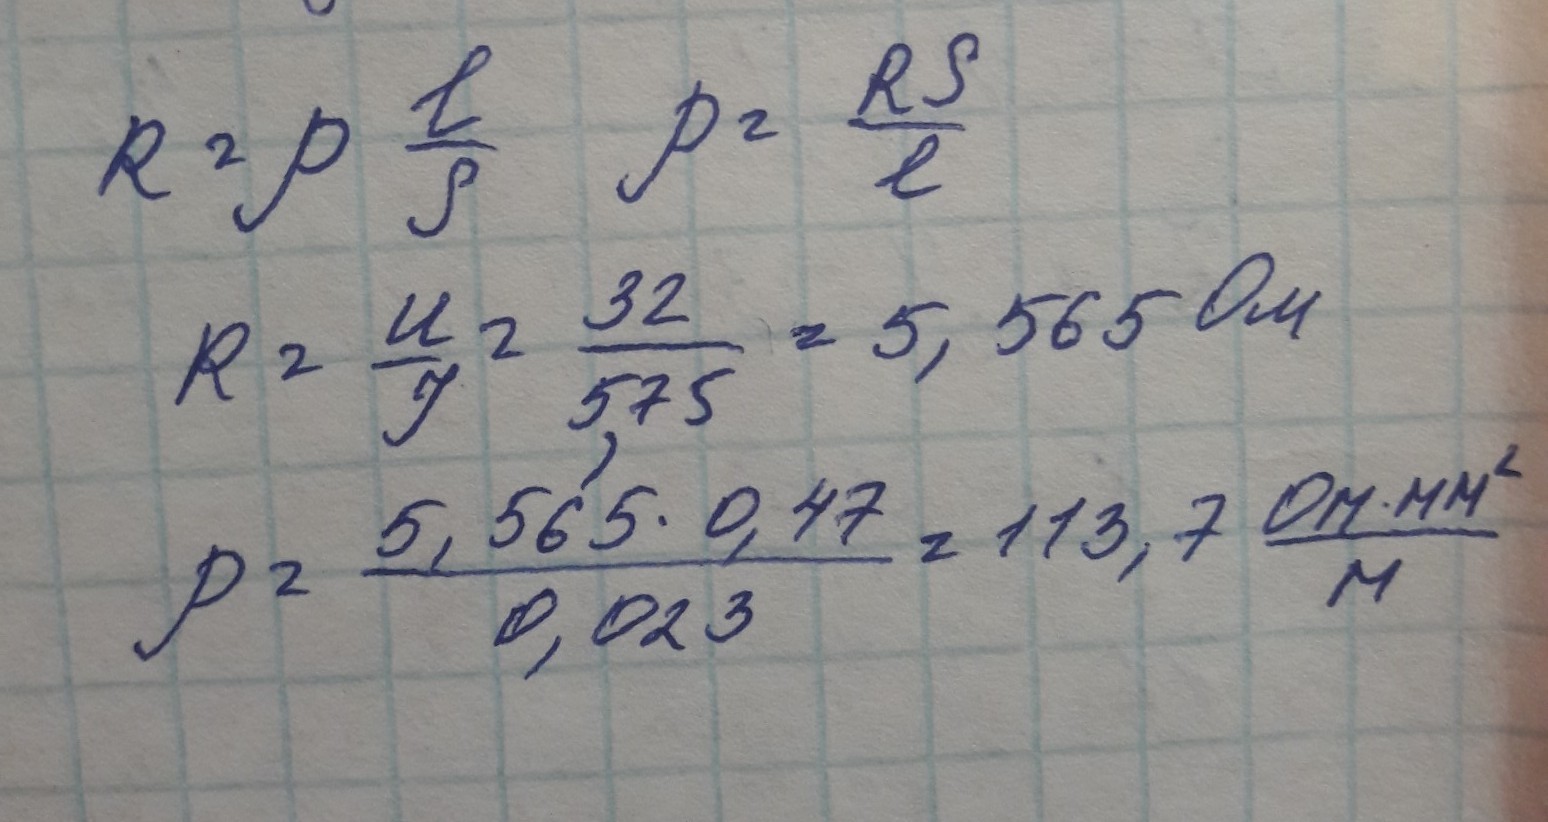 R = ρ l/S ρ = RS/l
R = U/I = 32/5,75 = 5,565 Ом
ρ = 5,565 · 0,47/0,023 = 113,7 Ом·мм²/м